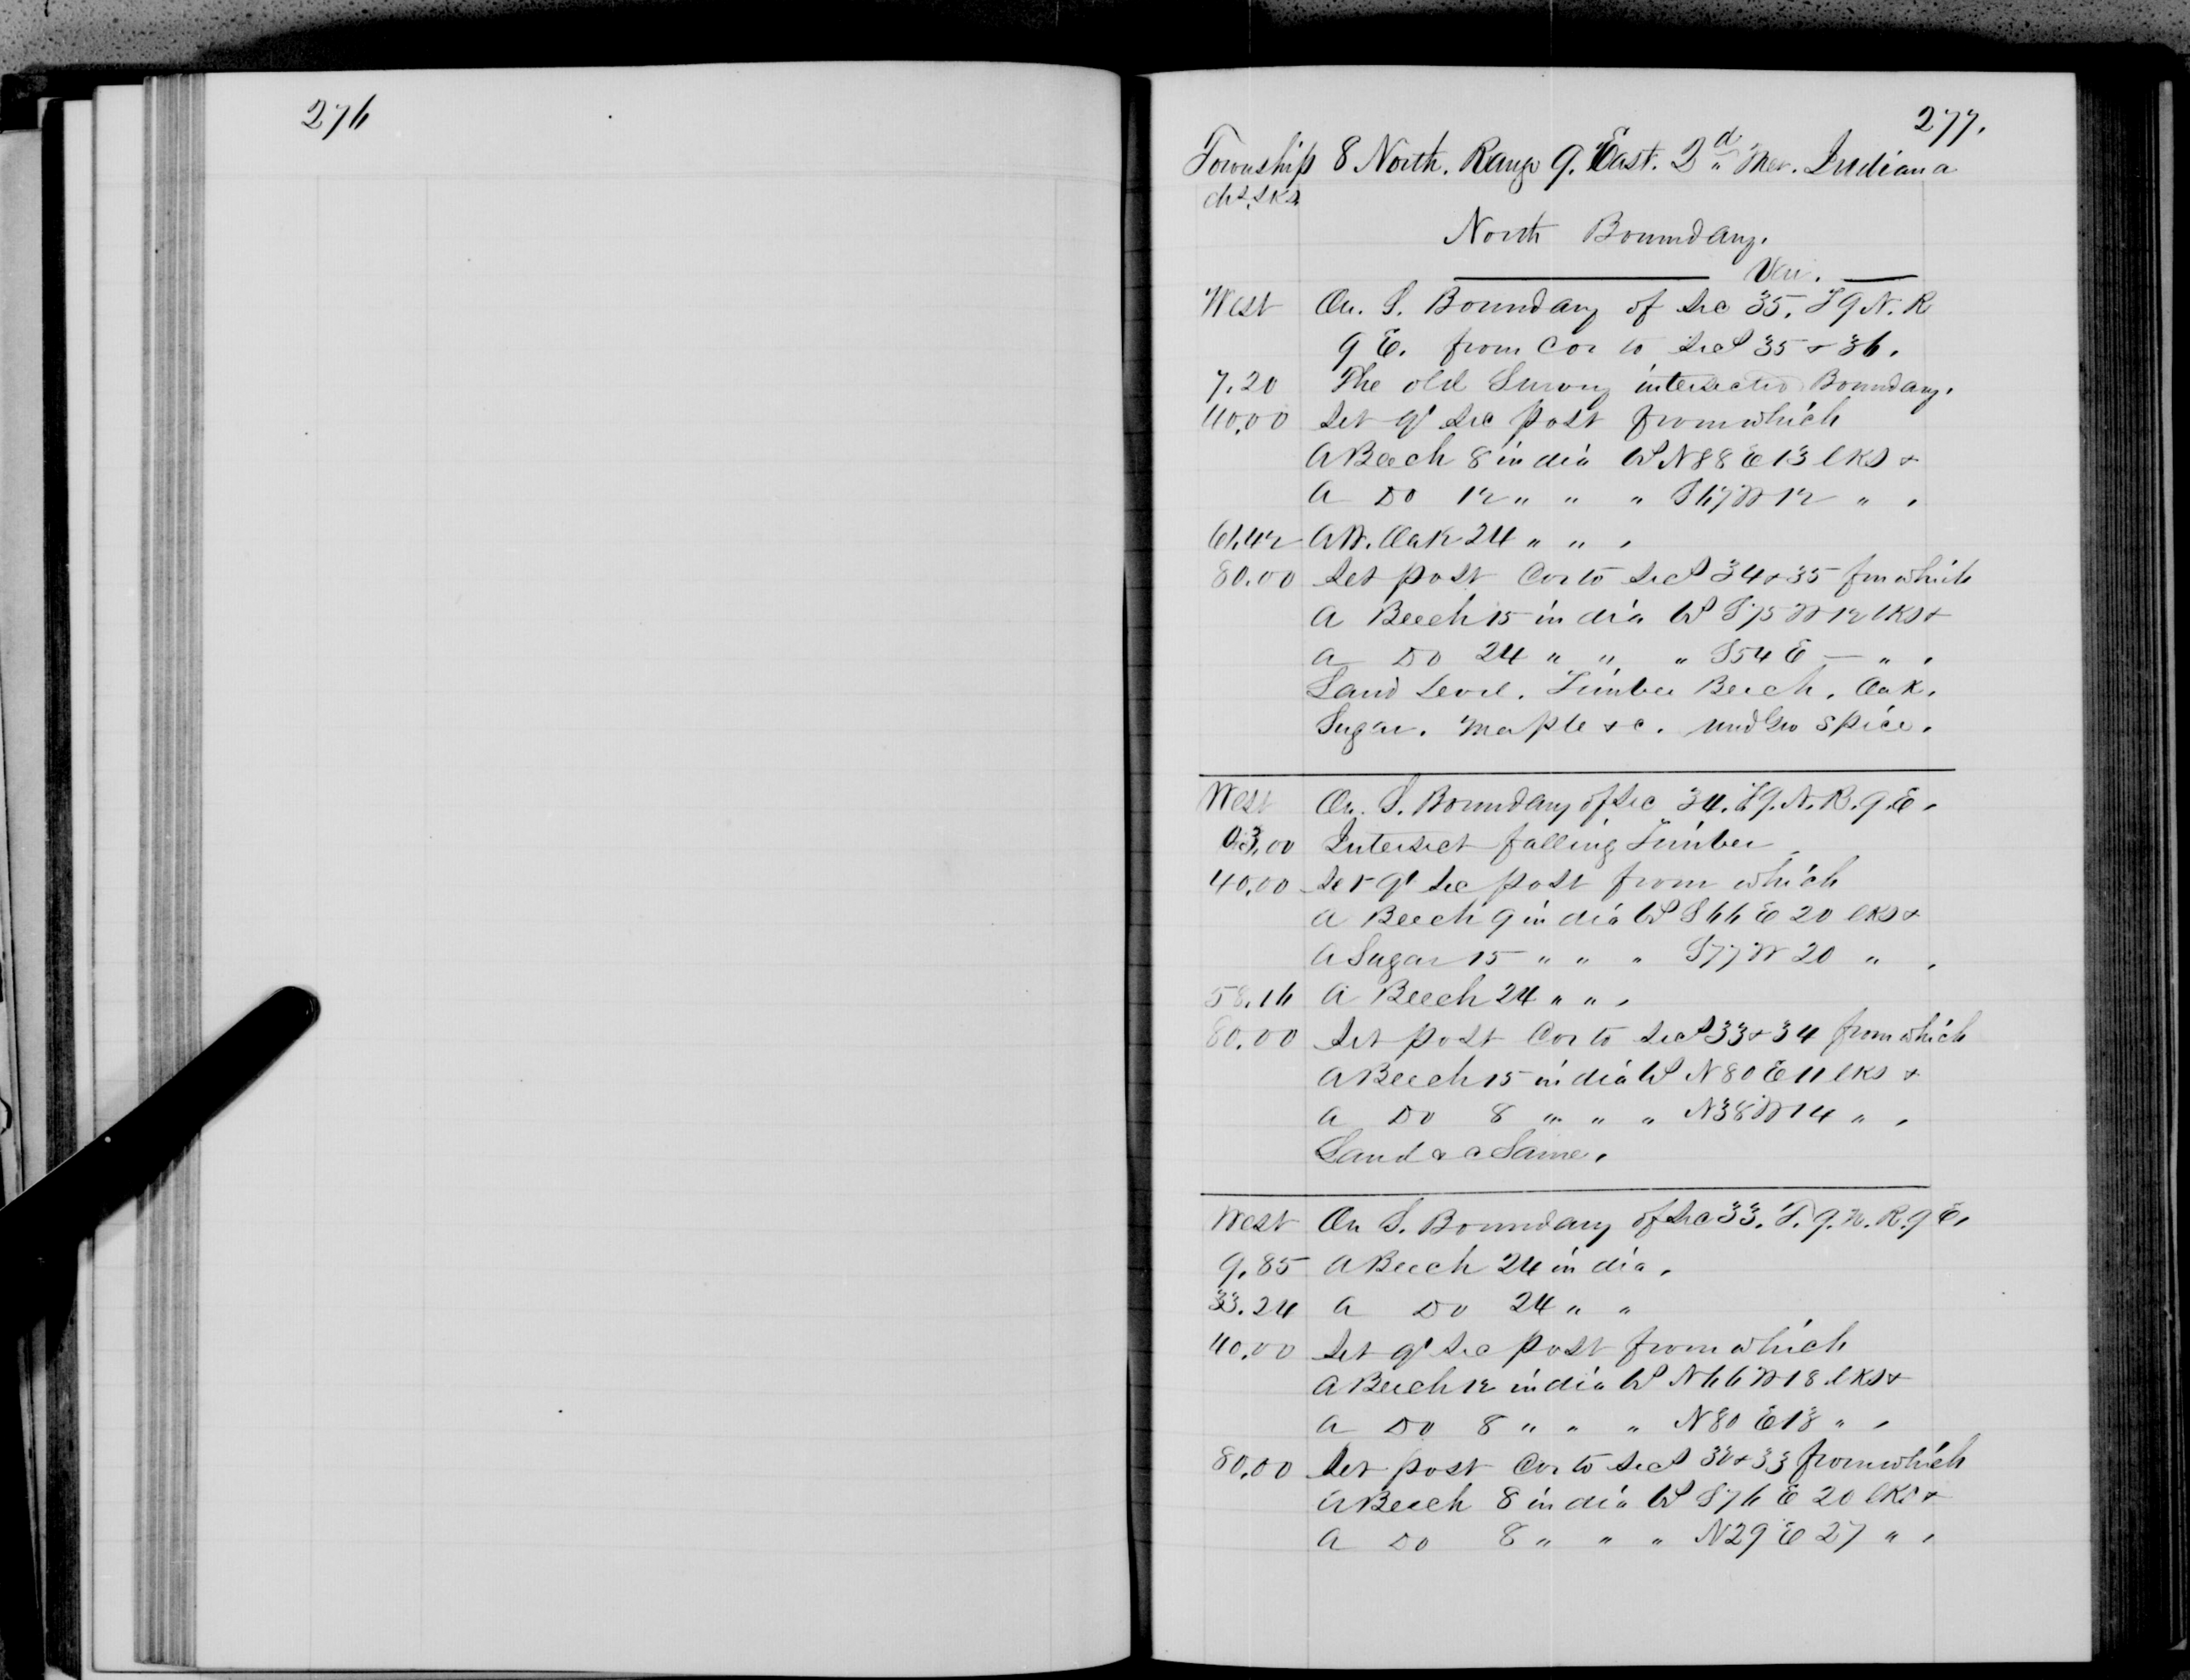 276
277.
Township 8 North. Range 9. East. 2d Mer. Indiana
chs. lks.
North Boundary.
Var.
West On. S. Boundary of Sec 35. T 9 N. R
9 E. from Cor to Secs 35 & 36.
7.20 The old Survey intersected Boundary.
40.00 Set qr Sec post from which
A Beech 8 in dia bs N 88 E 13 lks &
A Do 12 " " " S 67 W 12 " "
61.42 A W. Oak 24 " " "
80.00 Set post Cor to Secs 34 & 35 fm which
A Beech 15 in dia bs S 75 W 12 lks &
A Do 24 " " " S 54 E — " "
Land Level. Timber Beech. Oak.
Sugar. Maple &c. Und Gro Spice.
West On. S. Boundary of Sec 34. T 9. N. R. 9 E.
03.00 Intersect falling Timber
40.00 Set qr Sec post from which
A Beech 9 in dia bs S 66 E 20 lks &
A Sugar 15 " " " S 77 W 20 " "
58.16 A Beech 24 " " "
80.00 Set post Cor to Secs 33 & 34 from which
A Beech 15 in dia bs N 80 E 11 lks &
A Do 8 " " " N 38 W 14 " "
Land &c Same.
West On S. Boundary of Sec 33. T. 9. N. R. 9 E.
9.85 A Beech 24 in dia.
33.24 A Do 24 " "
40.00 Set qr Sec post from which
A Beech 12 in dia bs N 66 W 18 lks &
A Do 8 " " " N 80 E 18 " "
80.00 Set post Cor to Secs 32 & 33 from which
A Beech 8 in dia bs S 76 E 20 lks &
A Do 8 " " " N 29 E 27 " "